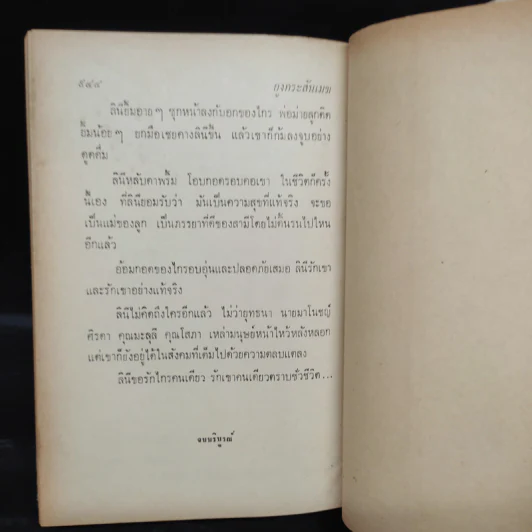 ๕๘๘ ยูงกระสันเมฆ
ลินียิ้มอายๆ ซุกหน้าลงกับอกของไกร พ่อม่ายลูกติด
ยิ้มน้อยๆ ยกมือเชยคางลินีขึ้น แล้วเขาก็ก้มลงจูบอย่าง
ดูดดื่ม
ลินีหลับตาพริ้ม โอบกอดรอบคอเขา ในชีวิตก็ครั้ง
นี้เอง ที่ลินียอมรับว่า มันเป็นความสุขที่แท้จริง จะขอ
เป็นแม่ของลูก เป็นภรรยาที่ดีของสามีโดยไม่ดิ้นรนไปไหน
อีกแล้ว
อ้อมกอดของไกรอบอุ่นและปลอดภัยเสมอ ลินีรักเขา
และรักเขาอย่างแท้จริง
ลินีไม่คิดถึงใครอีกแล้ว ไม่ว่ายุทธนา นายมาโนชญ์
ศิรดา คุณมะสุลี คุณโสภา เหล่ามนุษย์หน้าไหว้หลังหลอก
แต่เขาก็ยังอยู่ได้ในสังคมที่เต็มไปด้วยความตลบแตลง
ลินีขอรักไกรคนเดียว รักเขาคนเดียวตราบชั่วชีวิต...
จบบริบูรณ์